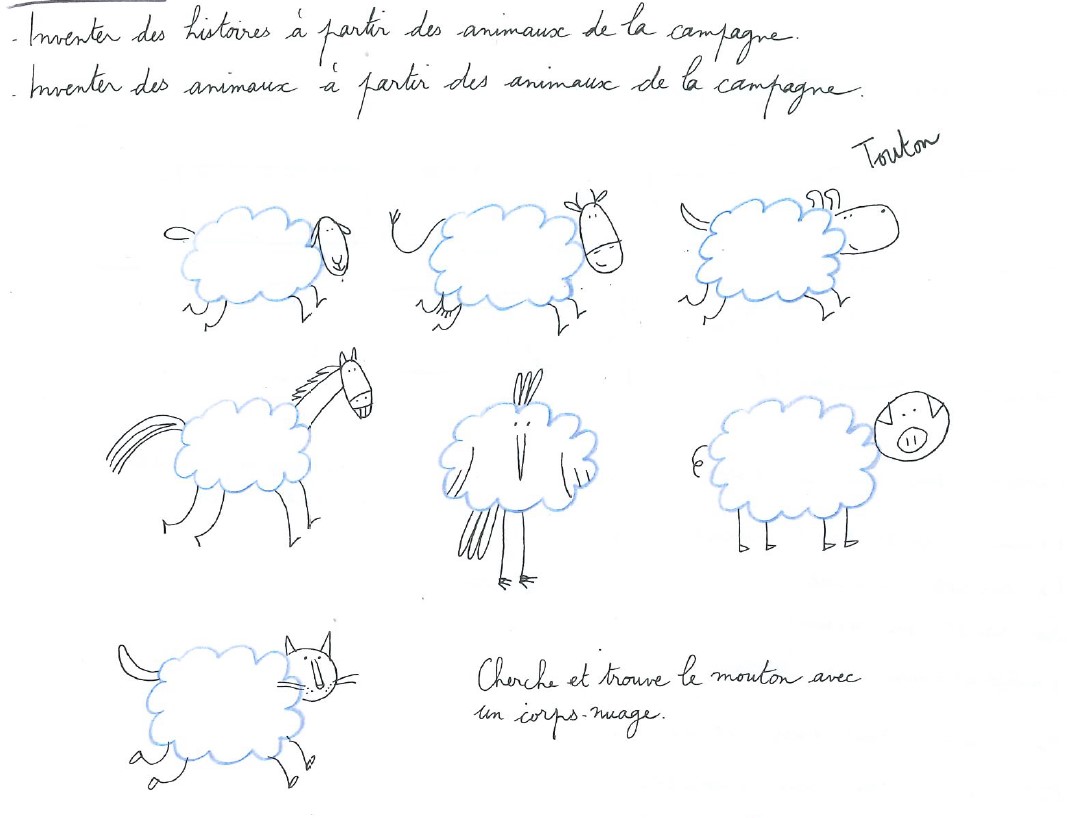 . Inventer des histoires à partir des animaux de la campagne.
. Inventer des animaux à partir des animaux de la campagne.
Touton
Cherche et trouve le mouton avec
un corps-nuage.